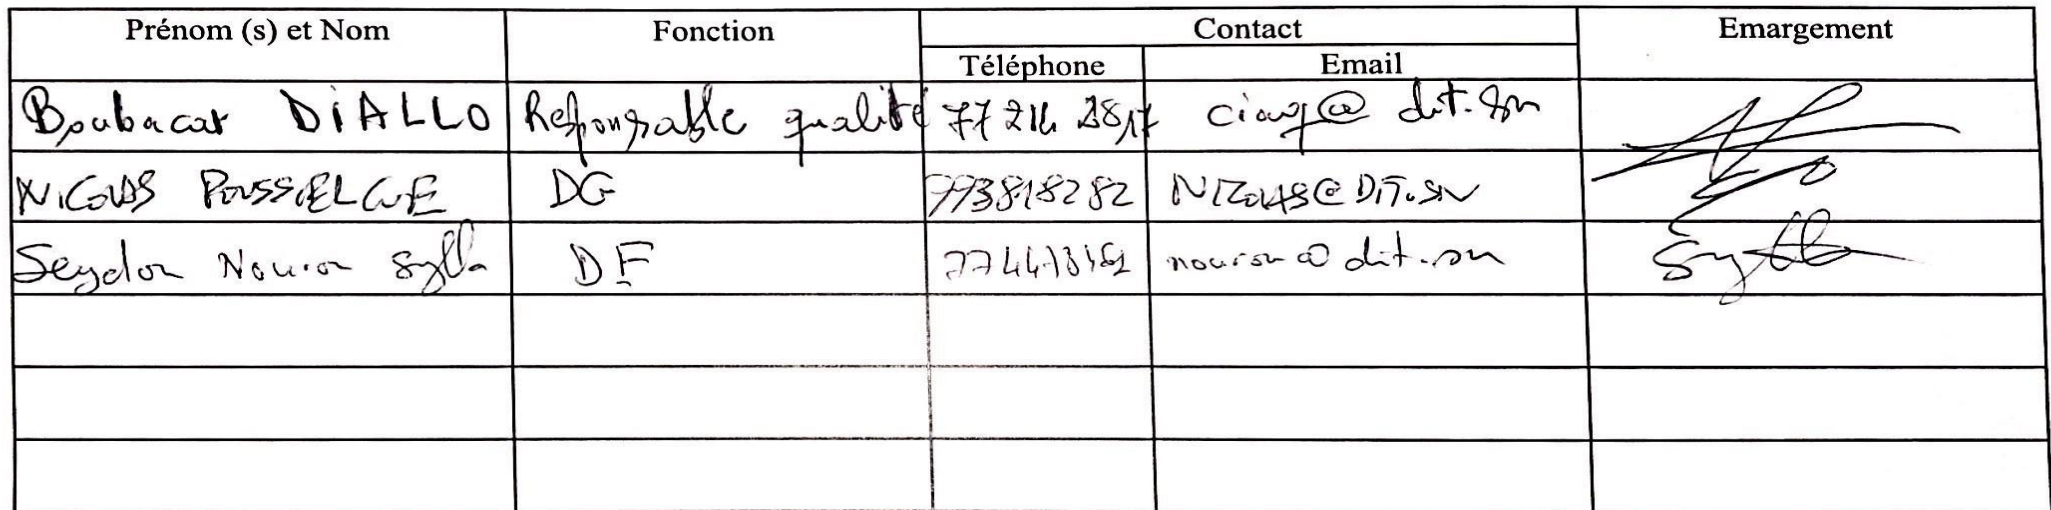 Prénom (s) et Nom Fonction Contact Emargement
Téléphone Email
Boubacar DiALLO Responsable qualité 77 214 28 17 ciaq@dit.sn
NICOLAS POUSSIELGUE DG 773818282 NICOLAS@DIT.SN
Seydou Nourou Sylla DF nourou@dit.sn Sylla